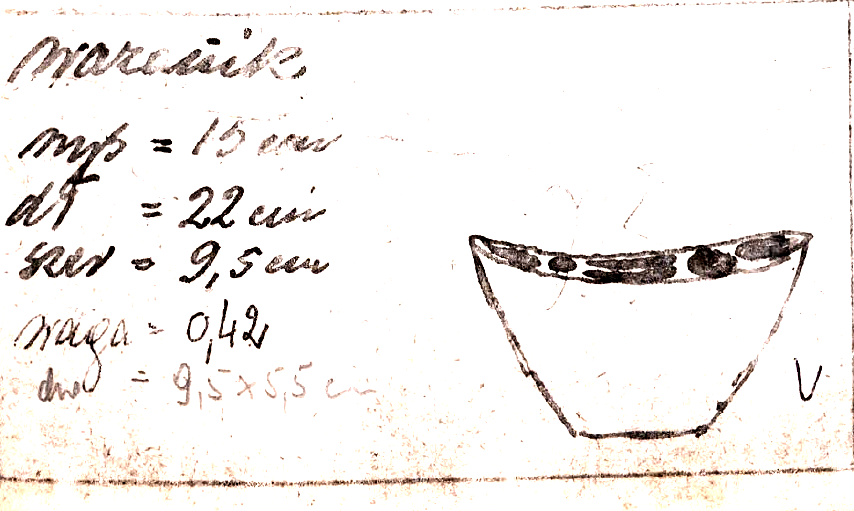 wazonik
wys = 15 cm
dł = 22 cm
szer = 9,5 cm
waga = 0,42
dno = 9,5x5,5 cm
V